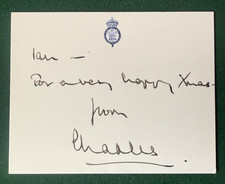 Ian —
For a very happy Xmas -
from
Charles